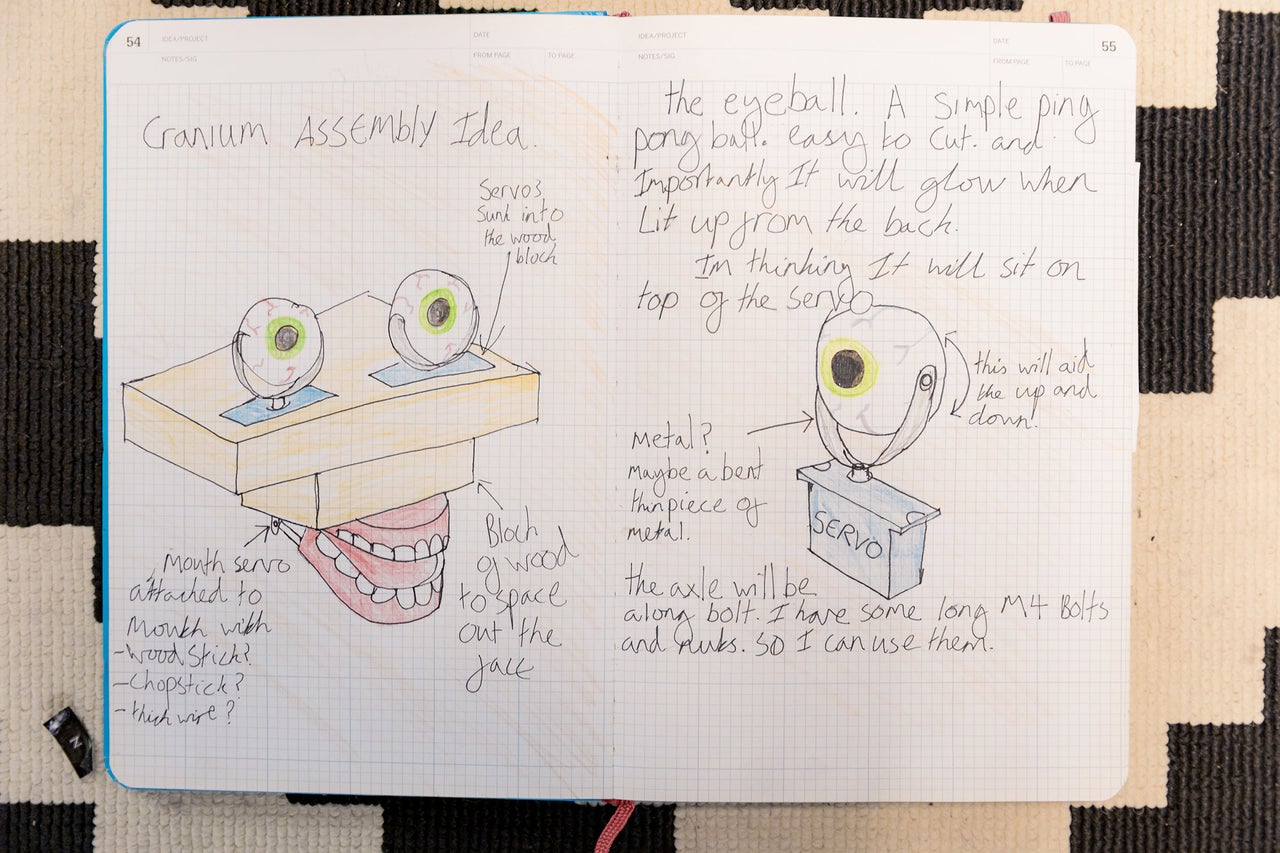 54
IDEA/PROJECT
NOTES/SIG
DATE
FROM PAGE
TO PAGE
Cranium Assembly Idea.
Servos
Sunk into
the wood
block
Mouth servo
attached to
Mouth with
- Wood Stick?
- Chopstick?
- thick wire?
Block
of wood
to space
out the
face
IDEA/PROJECT
NOTES/SIG
DATE
FROM PAGE
TO PAGE
55
the eyeball. A simple ping
pong ball. easy to cut. and
Importantly It will glow when
Lit up from the back.
Im thinking It will sit on
top of the servo
this will aid
the up and
down!
Metal?
maybe a bent
thin piece of
metal.
SERVO
the axle will be
along bolt. I have some long M4 Bolts
and nuts. SO I can use them.
N